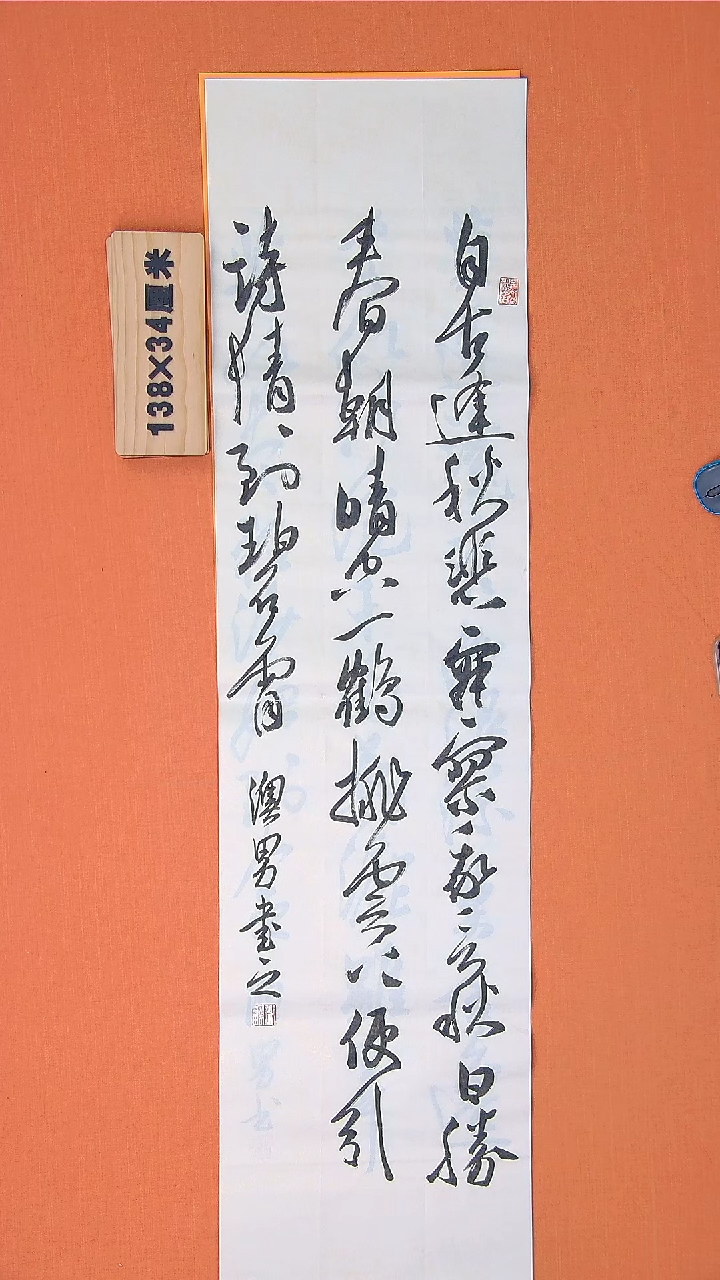 自古逢秋悲寂寥我言秋日勝
春朝晴空一鶴排雲上便引
詩情到碧霄
澳男書之
138×34厘米